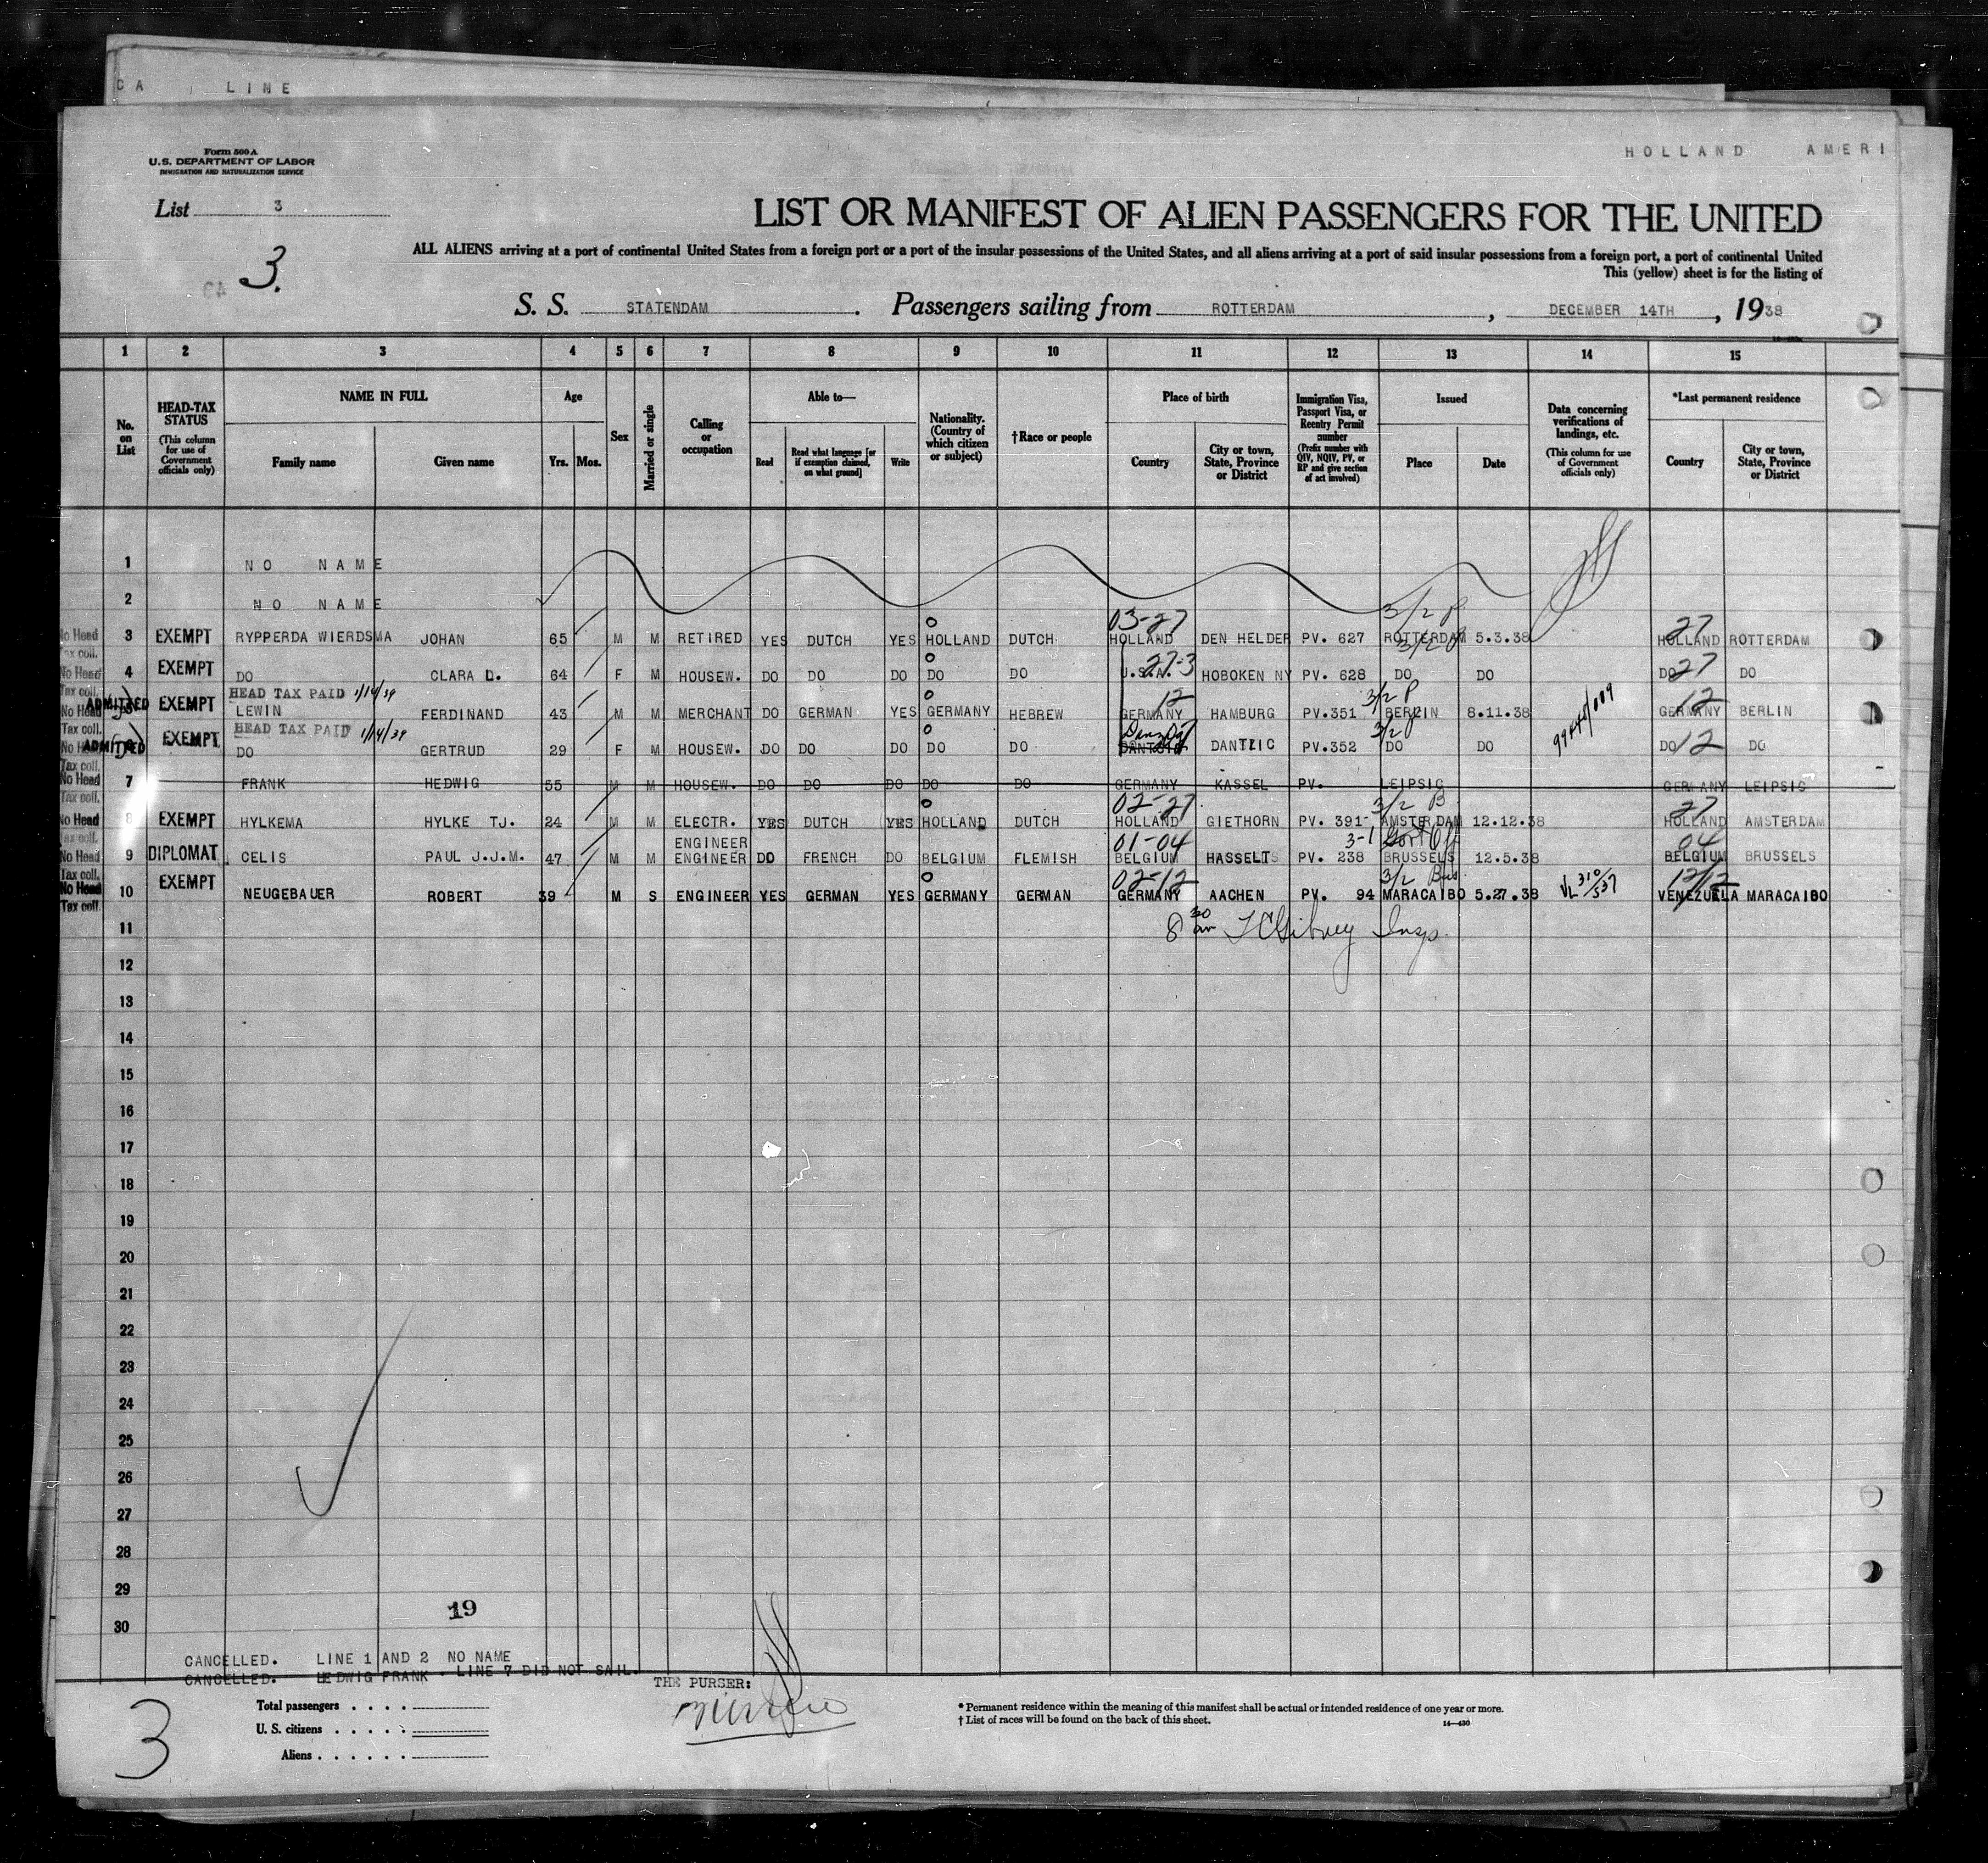 CA LINE
HOLLAND AMERI
Form 500 A
U.S. DEPARTMENT OF LABOR
IMMIGRATION AND NATURALIZATION SERVICE
List 3
3.
LIST OR MANIFEST OF ALIEN PASSENGERS FOR THE UNITED
ALL ALIENS arriving at a port of continental United States from a foreign port or a port of the insular possessions of the United States, and all aliens arriving at a port of said insular possessions from a foreign port, a port of continental United
This (yellow) sheet is for the listing of
S. S. STATENDAM. Passengers sailing from ROTTERDAM, DECEMBER 14TH, 1938
1 2 3 4 5 6 7 8 9 10 11 12 13 14 15
No. on List
HEAD-TAX STATUS (This column for use of Government officials only)
NAME IN FULL
Family name Given name
Age
Yrs. Mos.
Sex
Married or single
Calling or occupation
Able to—
Read Read what language [or if exemption claimed, on what ground] Write
Nationality. (Country of which citizen or subject)
†Race or people
Place of birth
Country City or town, State, Province or District
Immigration Visa, Passport Visa, or Reentry Permit number (Prefix number with QIV, NQIV, PV, or RP and give section of act involved)
Issued
Place Date
Data concerning verifications of landings, etc. (This column for use of Government officials only)
*Last permanent residence
Country City or town, State, Province or District
1 NO NAME
2 NO NAME
03-27 3/2 P 27
No Head Tax coll. 3 EXEMPT RYPPERDA WIERDSMA JOHAN 65 M M RETIRED YES DUTCH YES HOLLAND DUTCH HOLLAND DEN HELDER PV. 627 ROTTERDAM 5.3.38 HOLLAND ROTTERDAM
27-3 3/2 P 27
No Head Tax coll. 4 EXEMPT DO CLARA D. 64 F M HOUSEW. DO DO DO DO DO U.S.A. HOBOKEN NY PV. 628 DO DO DO DO
HEAD TAX PAID 1/14/39 12 3/2 P 12
ADMITTED No Head Tax coll. 5 EXEMPT LEWIN FERDINAND 43 M M MERCHANT DO GERMAN YES GERMANY HEBREW GERMANY HAMBURG PV.351 BERLIN 8.11.38 GERMANY BERLIN
HEAD TAX PAID 1/14/39 Danzig 3/2 P 12
ADMITTED No Head Tax coll. 6 EXEMPT DO GERTRUD 29 F M HOUSEW. DO DO DO DO DO DANTZIG DANTZIC PV.352 DO DO DO DO
No Head Tax coll. 7 FRANK HEDWIG 55 M M HOUSEW. DO DO DO DO DO GERMANY KASSEL PV. LEIPSIC GERMANY LEIPSIC
02-27 3/2 B 27
No Head Tax coll. 8 EXEMPT HYLKEMA HYLKE TJ. 24 M M ELECTR. ENGINEER YES DUTCH YES HOLLAND DUTCH HOLLAND GIETHORN PV. 391- AMSTERDAM 12.12.38 HOLLAND AMSTERDAM
01-04 3-1 Gov't Off 04
No Head Tax coll. 9 DIPLOMAT CELIS PAUL J.J.M. 47 M M ENGINEER DO FRENCH DO BELGIUM FLEMISH BELGIUM HASSELTS PV. 238 BRUSSELS 12.5.38 BELGIUM BRUSSELS
02-12 3/2 Bus VL 310/537 12/12
No Head Tax coll. 10 EXEMPT NEUGEBAUER ROBERT 39 M S ENGINEER YES GERMAN YES GERMANY GERMAN GERMANY AACHEN PV. 94 MARACAIBO 5.27.38 VENEZUELA MARACAIBO
11
12
13
14
15
16
17
18
19
20
21
22
23
24
25
26
27
28
29
30
19
CANCELLED. LINE 1 AND 2 NO NAME
CANCELLED. HEDWIG FRANK - LINE 7 DID NOT SAIL.
THE PURSER:
3
Total passengers
U. S. citizens
Aliens
* Permanent residence within the meaning of this manifest shall be actual or intended residence of one year or more.
† List of races will be found on the back of this sheet.
14—430